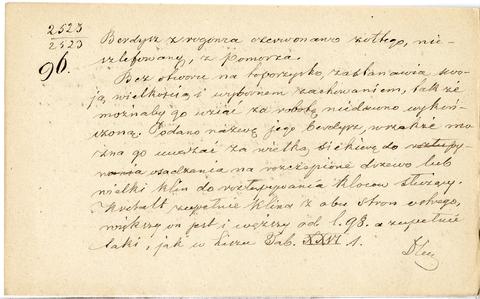 2523
2523
96.
Berdysz z rogowca czerwonawo żółtego, nie-
szlifowany, z Pomorza.
Bez otworu na toporzysko, zastanawia swo-
ją wielkością i wybornem zachowaniem, tak że
możnaby go wziąć za robotę niedawno wykoń-
czoną. Podano nazwę jego berdysz, wszakże mo-
żna go uważać za wielką siekierę do
osadzania na rozczepione drzewo lub
wielki klin do rozłupywania kloców służący.
Kształt zupełnie klina z obu stron
większy on jest i węższy od l. 98. a zupełnie
taki, jak w Tab. XXVI 1.